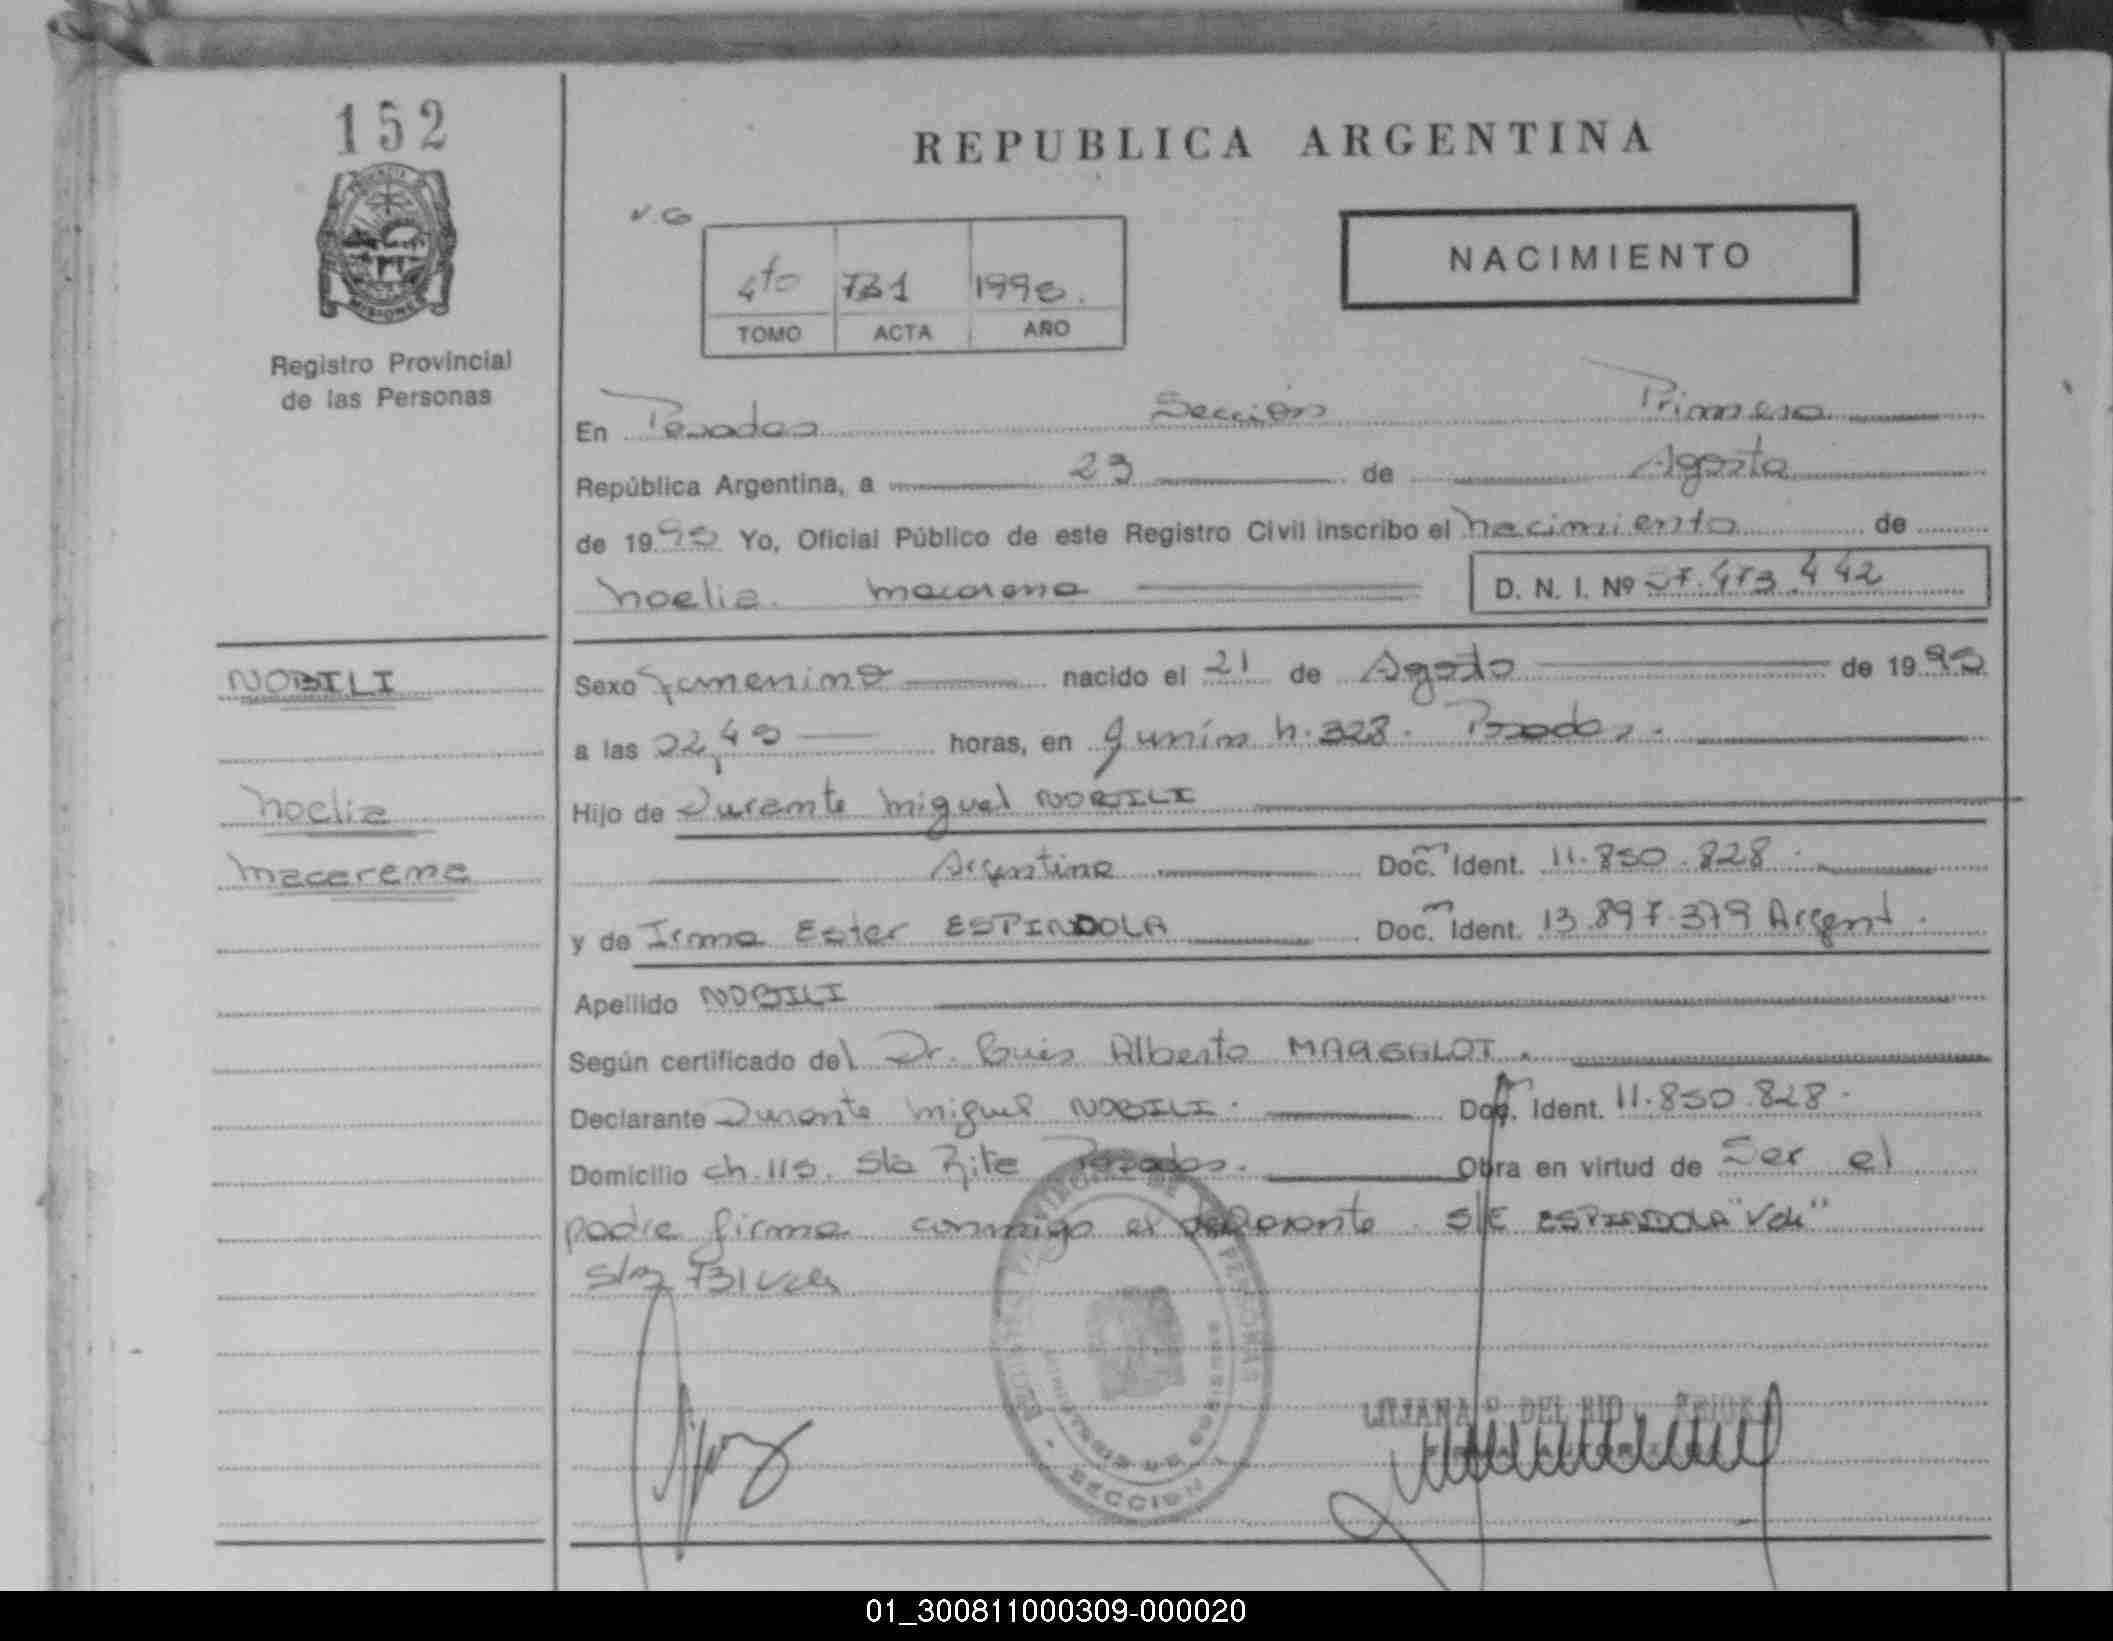 152
REPUBLICA ARGENTINA
NACIMIENTO
4to 731 1990.
TOMO ACTA AÑO
Registro Provincial
de las Personas
En Posadas Sección Primera
República Argentina, a 23 de Agosto
de 1990 Yo, Oficial Público de este Registro Civil inscribo el nacimiento de
Noelia Macarena D. N. I. Nº 442
NOBILI
Sexo femenino nacido el 21 de Agosto de 1990
a las 22,40 horas, en Junín n. 328. Posadas.
Noelia
Hijo de Durante Miguel NOBILI
Macarena
Argentino Doc. Ident. 11.850.828.
y de Irma Ester ESPINDOLA Doc. Ident. 13.897.379 Argent.
Apellido NOBILI
Según certificado del Dr. Luis Alberto MARGALOT.
Declarante Durante Miguel NOBILI. Doc. Ident. 11.850.828.
Domicilio ch.115. Sta Rita Posadas. Obra en virtud de Ser el
padre firma conmigo el declarante S/E ESPINDOLA "Vale"
S/R 731 Vale
SECCION
LILIANA DEL RIO
01_300811000309-000020